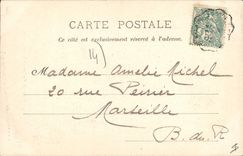 CARTE POSTALE
Ce côté est exclusivement réservé à l'adresse.
14)
Madame Amelie Michel
20 rue Périer
Marseille
B. du R